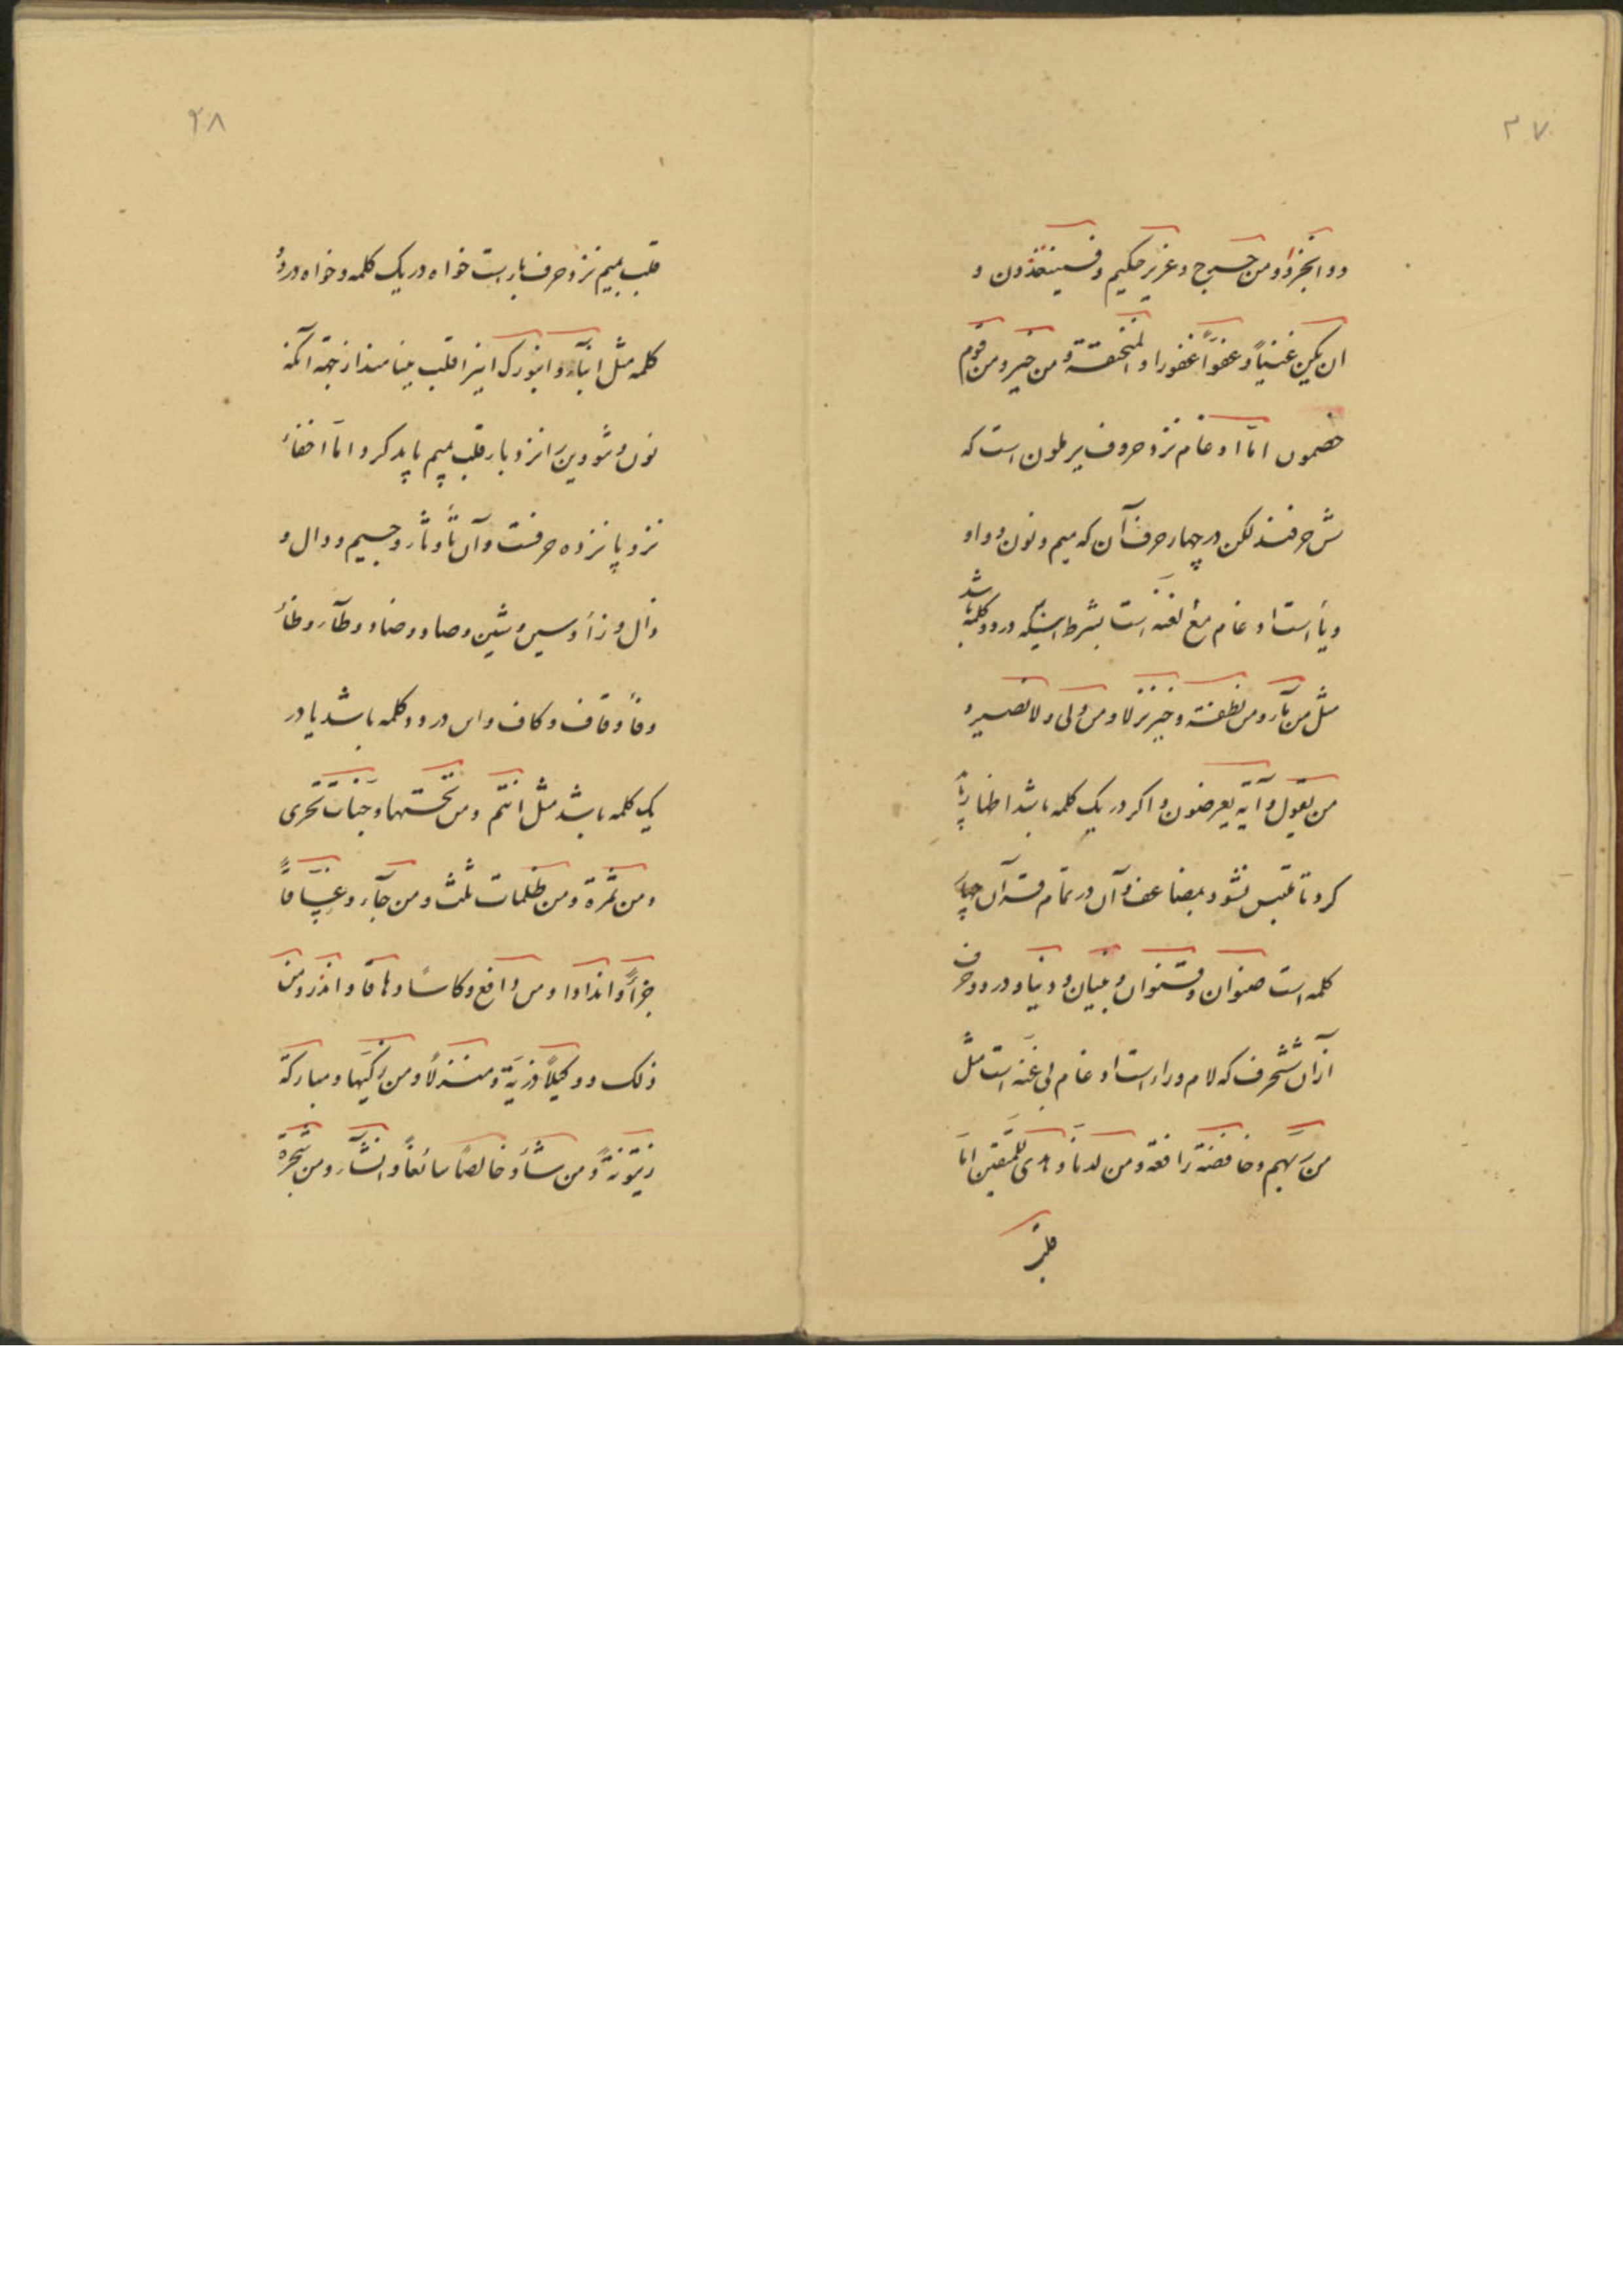 ۳۷
و وانحر و من حرج و عزیز حکیم و فسینغضون و
ان یکن غنیاً و عفوّاً غفورا و المنخنقة و من خیر و من قوم
خصمون امّا ادغام نزد حروف یرملون است که
شش حرفند لکن در چهار حرف آن که میم و نون و واو
و یاٴ است ادغام مع الغنه است بشرط اینکه در دو کلمه باشد
مثل من مآء و من نطفة و خیر نزلا و من ولی و لا نصیر و
من یقول و آیة یعرضون و اکر در یک کلمه باشد اظهار باید
کرد تا ملتبس نشود بمضاعف و آن در تمام قرآن چهار
کلمه است صنوان و قنوان و بنیان و دنیا و در دو حرف
از آن ششحرف که لام و راء است ادغام بی غنّه است مثل
من ربّهم و خافضة رافعة و من لدنّا و هدی للمتقین امّا
قلب
۲۸
قلب بمیم نزد حرف باء است خواه در یک کلمه و خواه در دو
کلمه مثل انبآء و ان بورک اینرا قلب مینامند از جهة آنکه
نون و تنوین را نزد باء قلب بمیم باید کرد و امّا اخفاء
نزد پانزده حرفست و آن تآ و ثآء و جیم و دال و
ذال و زاٴ و سین و شین و صاد و ضاد و طآء و ظاٴ
و فا و قاف و کاف و این در دو کلمه باشد یا در
یک کلمه باشد مثل انتم و من تحتها و جنّات تجری
و من ثمرة و من ظلمات ثلث و من جآء و غسّاقاً
جزآءً و انداداً و من دافع و کاسا دهاقا و انذر و من
ذلک و وکیلاً ذریّة و منزلاً و من زکّیها و مبارکة
زیتونة و من شآء و خالصاً سائغاً و انشآء و من شجرة